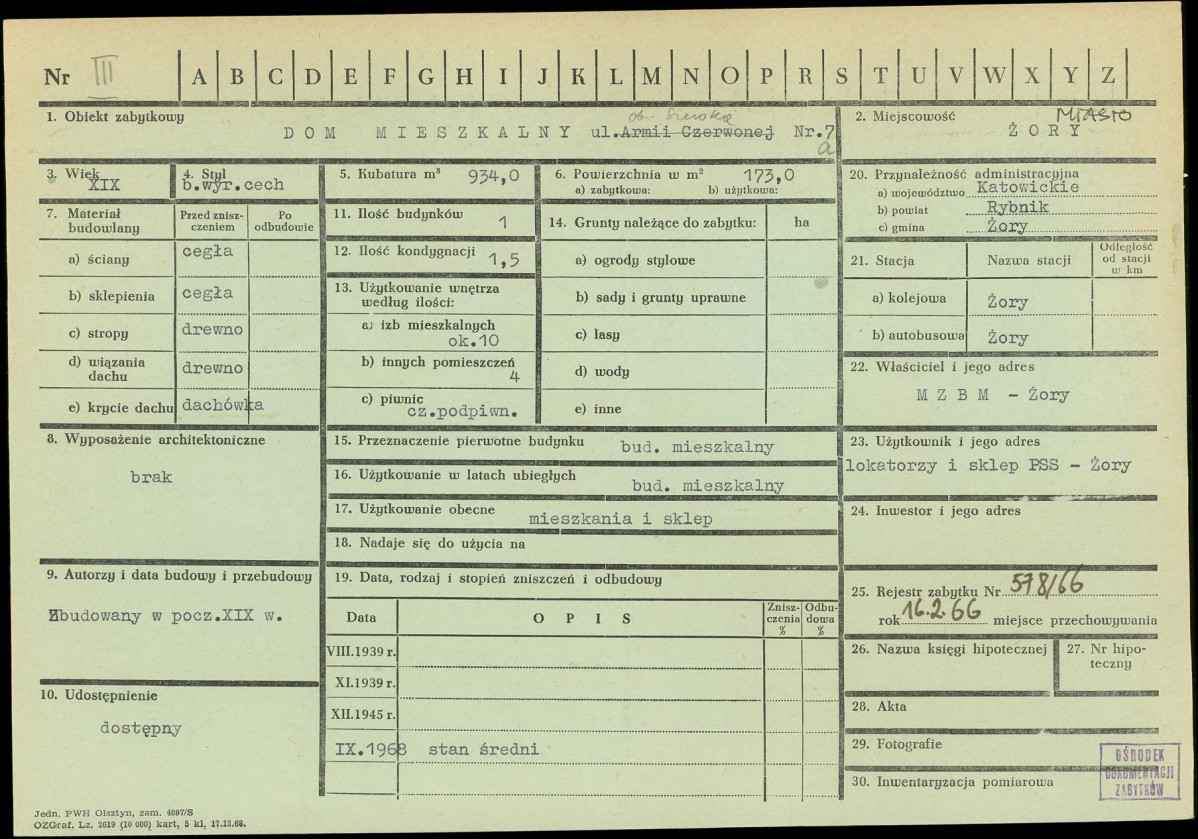 Nr III A B C D E F G H I J K L M N O P R S T U V W X Y Z
1. Obiekt zabytkowy
DOM MIESZKALNY ul. Armii Czerwonej Nr.7
a
ob. Szeroka
2. Miejscowość
MIASTO
ŻORY
3. Wiek
XIX
4. Styl
b.wyr.cech
5. Kubatura m³ 934,0
6. Powierzchnia w m² 173,0
a) zabytkowa: b) użytkowa:
20. Przynależność administracyjna
a) województwo Katowickie
b) powiat Rybnik
c) gmina Żory
7. Materiał budowlany
Przed zniszczeniem
Po odbudowie
a) ściany cegła
b) sklepienia cegła
c) stropy drewno
d) wiązania dachu drewno
e) krycie dachu dachówka
11. Ilość budynków 1
12. Ilość kondygnacji 1,5
13. Użytkowanie wnętrza
według ilości:
a) izb mieszkalnych
ok.10
b) innych pomieszczeń
4
c) piwnic
cz.podpiwn.
14. Grunty należące do zabytku: ha
a) ogrody stylowe
b) sady i grunty uprawne
c) lasy
d) wody
e) inne
21. Stacja Nazwa stacji
Odległość
od stacji
w km
a) kolejowa Żory
b) autobusowa Żory
22. Właściciel i jego adres
M Z B M - Żory
8. Wyposażenie architektoniczne
brak
15. Przeznaczenie pierwotne budynku bud. mieszkalny
16. Użytkowanie w latach ubiegłych bud. mieszkalny
17. Użytkowanie obecne mieszkania i sklep
18. Nadaje się do użycia na
23. Użytkownik i jego adres
lokatorzy i sklep PSS - Żory
24. Inwestor i jego adres
9. Autorzy i data budowy i przebudowy
Zbudowany w pocz.XIX w.
10. Udostępnienie
dostępny
19. Data, rodzaj i stopień zniszczeń i odbudowy
Data O P I S Zniszczenia % Odbudowa %
VIII.1939 r.
XI.1939 r.
XII.1945 r.
IX.1968 stan średni
25. Rejestr zabytku Nr 578/66
rok 16.2.66 miejsce przechowywania
26. Nazwa księgi hipotecznej
27. Nr hipoteczny
28. Akta
29. Fotografie
30. Inwentaryzacja pomiarowa
OŚRODEK
DOKUMENTACJI
ZABYTKÓW
Jedn. PWH Olsztyn, zam. 4097/S
OZGraf. Lz. 2619 (10 000) kart, 5 kl, 17.12.68.